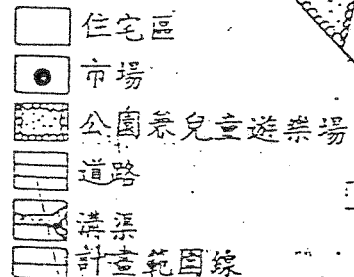 住宅區
市場
公園兼兒童遊樂場
道路
溝渠
計畫範圍線